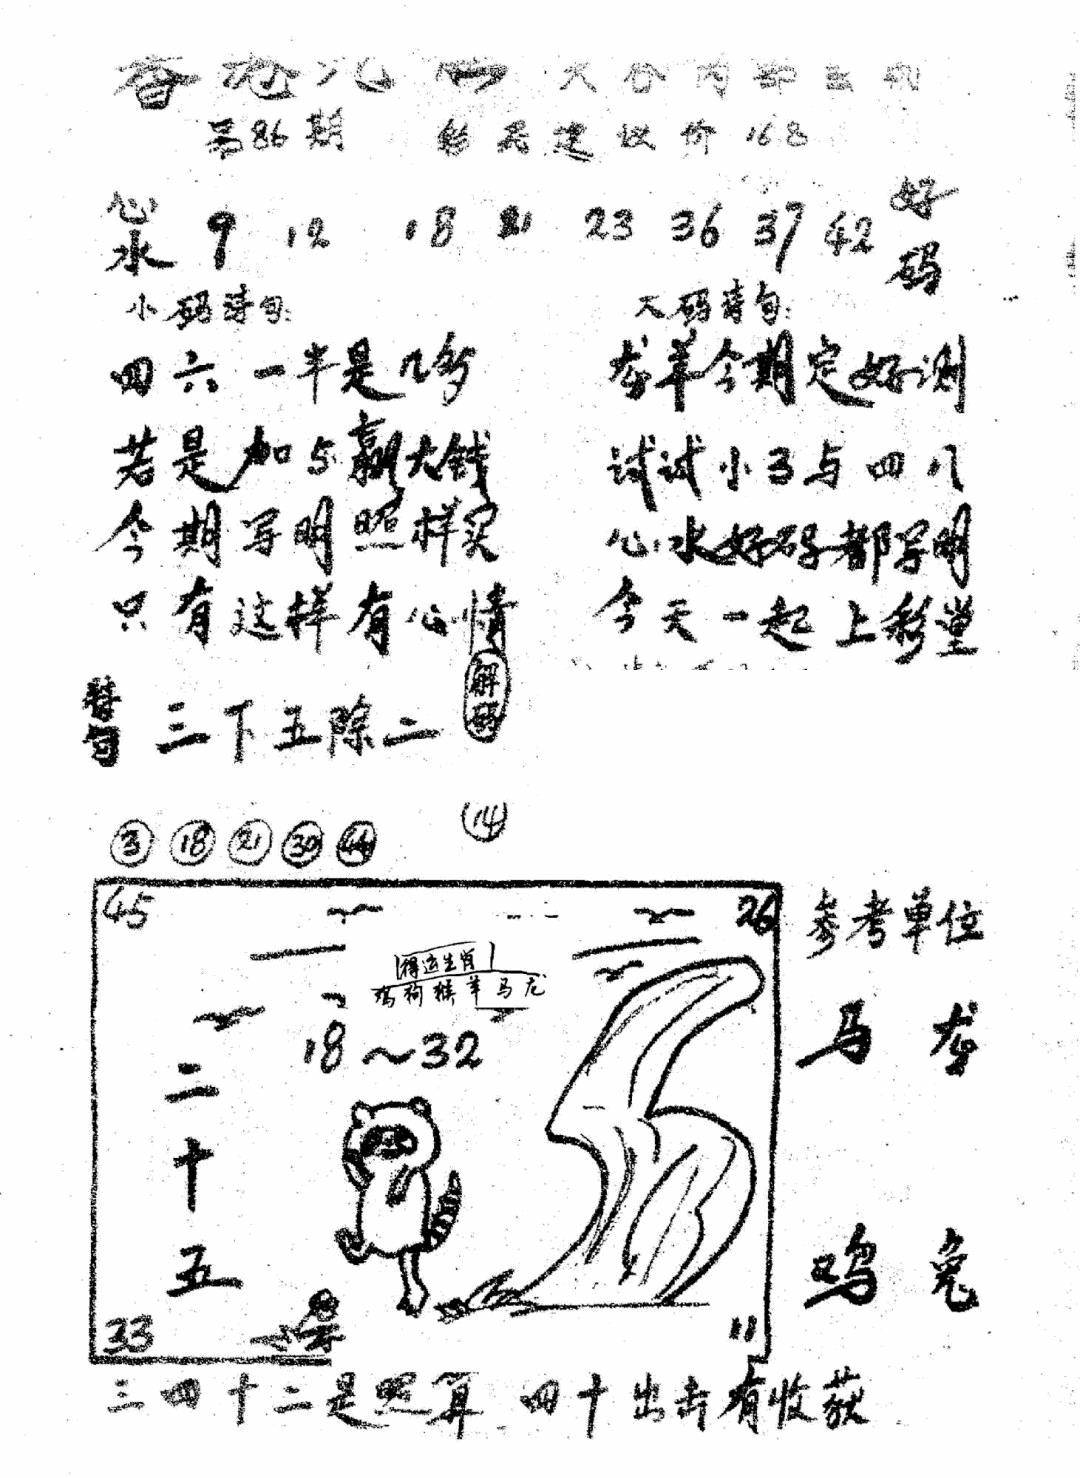 香港 六
第86期 彩民建议价168
心水 9 12 18 21 23 36 37 42 好码
小码诗句:
四六一半是几多
若是加5赢大钱
今期写明照样买
只有这样有心情
大码诗句:
龙羊今期定好测
试试小3与四八
心水好码都写明
今天一起上彩堂
三下五除二
解码
3 18 21 30 44
14
45 26
得运生肖
鸡狗猴羊马龙
18~32
二十五
33 11
参考单位
马 龙
鸡 兔
三四十二是照算 四十出击有收获